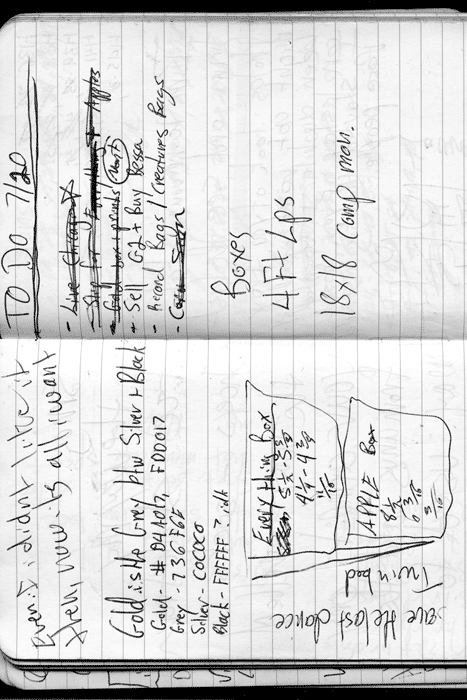 TO DO 7/20
- Live Chicago
- Ship for + Apples
- Gold box + prints
- Sell G2 + Buy Bessa
- Record Bags / Creatures Bags
Boxes
4 Ft LPs
18x18 Camp mon.
Even if i didnt like it
then, now is all i want
Gold is the Grey btw Silver + Black
Gold - # D4A017, FDD017
Grey - 736F6E
Silver - C0C0C0
Black - FFFFFF ? idk
Every thing Box
5 1/2 - 5
4 1/2 - 4
APPLE Box
8 1/2
Twin bed
save the last dance